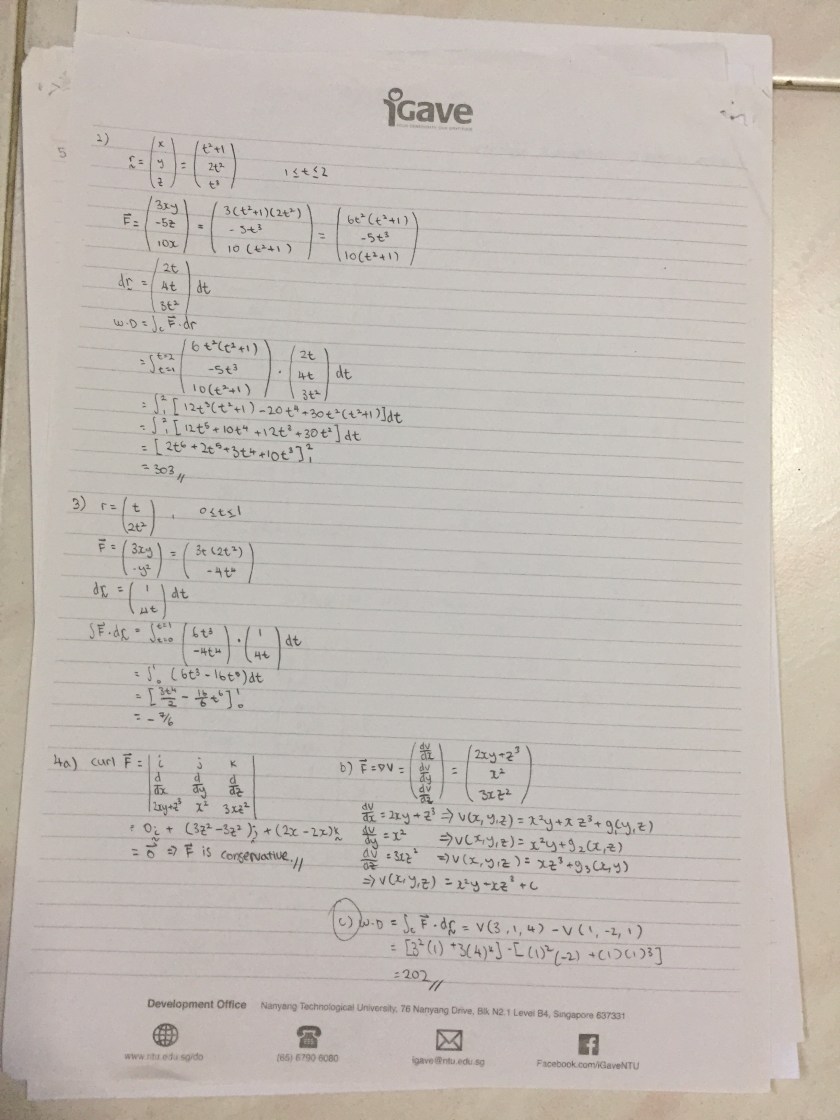 iGave
5
2) r = (x y z) = (t²+1 2t² t³) 1≤t≤2
F⃗ = (3xy -5z 10x) = (3(t²+1)(2t²) -5t³ 10(t²+1)) = (6t²(t²+1) -5t³ 10(t²+1))
dr = (2t 4t 3t²) dt
W.D = ∫c F⃗·dr
= ∫t=1 t=2 (6t²(t²+1) -5t³ 10(t²+1)) · (2t 4t 3t²) dt
= ∫₁² [12t³(t²+1) -20t⁴ +30t²(t²+1)]dt
= ∫₁² [12t⁵+10t⁴+12t³+30t²]dt
= [2t⁶+2t⁵+3t⁴+10t³]₁²
= 303 //
3) r = (t 2t²), 0≤t≤1
F⃗ = (3xy -y²) = (3t(2t²) -4t⁴)
dr = (1 4t) dt
∫F⃗·dr = ∫t=0 t=1 (6t³ -4t⁴) · (1 4t) dt
= ∫₀¹ (6t³-16t⁵)dt
= [3t⁴/2 - 16/6 t⁶]₀¹
= -7/6
4a) curl F⃗ = |i j k
d/dx d/dy d/dz
2xy+z³ x² 3xz²|
= 0i + (3z²-3z²)j + (2x-2x)k
= 0⃗ ⇒ F⃗ is conservative. //
b) F⃗ = ∇V = (dV/dx dV/dy dV/dz) = (2xy+z³ x² 3xz²)
dV/dx = 2xy+z³ ⇒ V(x,y,z) = x²y+xz³+g(y,z)
dV/dy = x² ⇒ V(x,y,z) = x²y+g₂(x,z)
dV/dz = 3xz² ⇒ V(x,y,z) = xz³+g₃(x,y)
⇒ V(x,y,z) = x²y+xz³+c
c) W.D = ∫c F⃗·dr = V(3,1,4) - V(1,-2,1)
= [3²(1)+3(4)³] - [(1)²(-2)+(1)(1)³]
= 202 //
Development Office Nanyang Technological University, 76 Nanyang Drive, Blk N2.1 Level B4, Singapore 637331
www.ntu.edu.sg/do (65) 6790 6080 igave@ntu.edu.sg Facebook.com/iGaveNTU